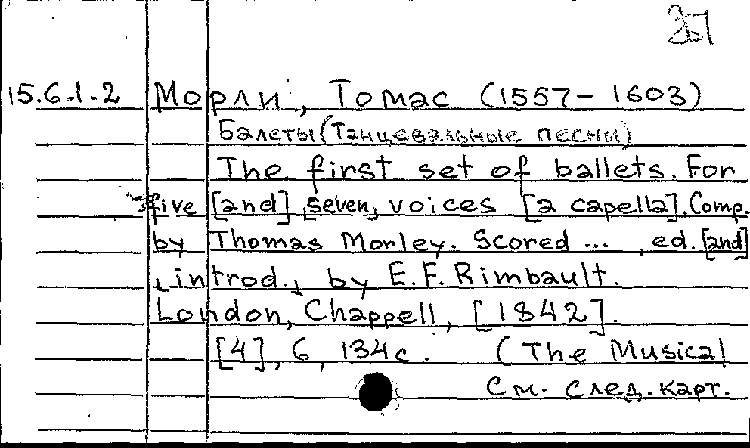 37
15.6.1.2 Морли, Томас (1557-1603)
Балеты (Танцевальные песни)
The first set of ballets. For
five [and] seven, voices [a capella]. Comp.
by Thomas Morley. Scored ... , ed. [and]
introd., by E.F. Rimbault.
London, Chappell, [1842].
[4], 6, 134 c. (The Musical
См. след. карт.